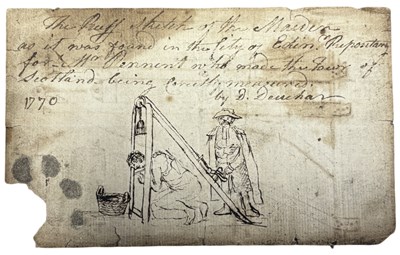 The Sketch of the Maiden
as it was found in the City of Edinr Repository
for Mr Pennent who made the Tour of
Scotland being
by D. Deuchar
1770